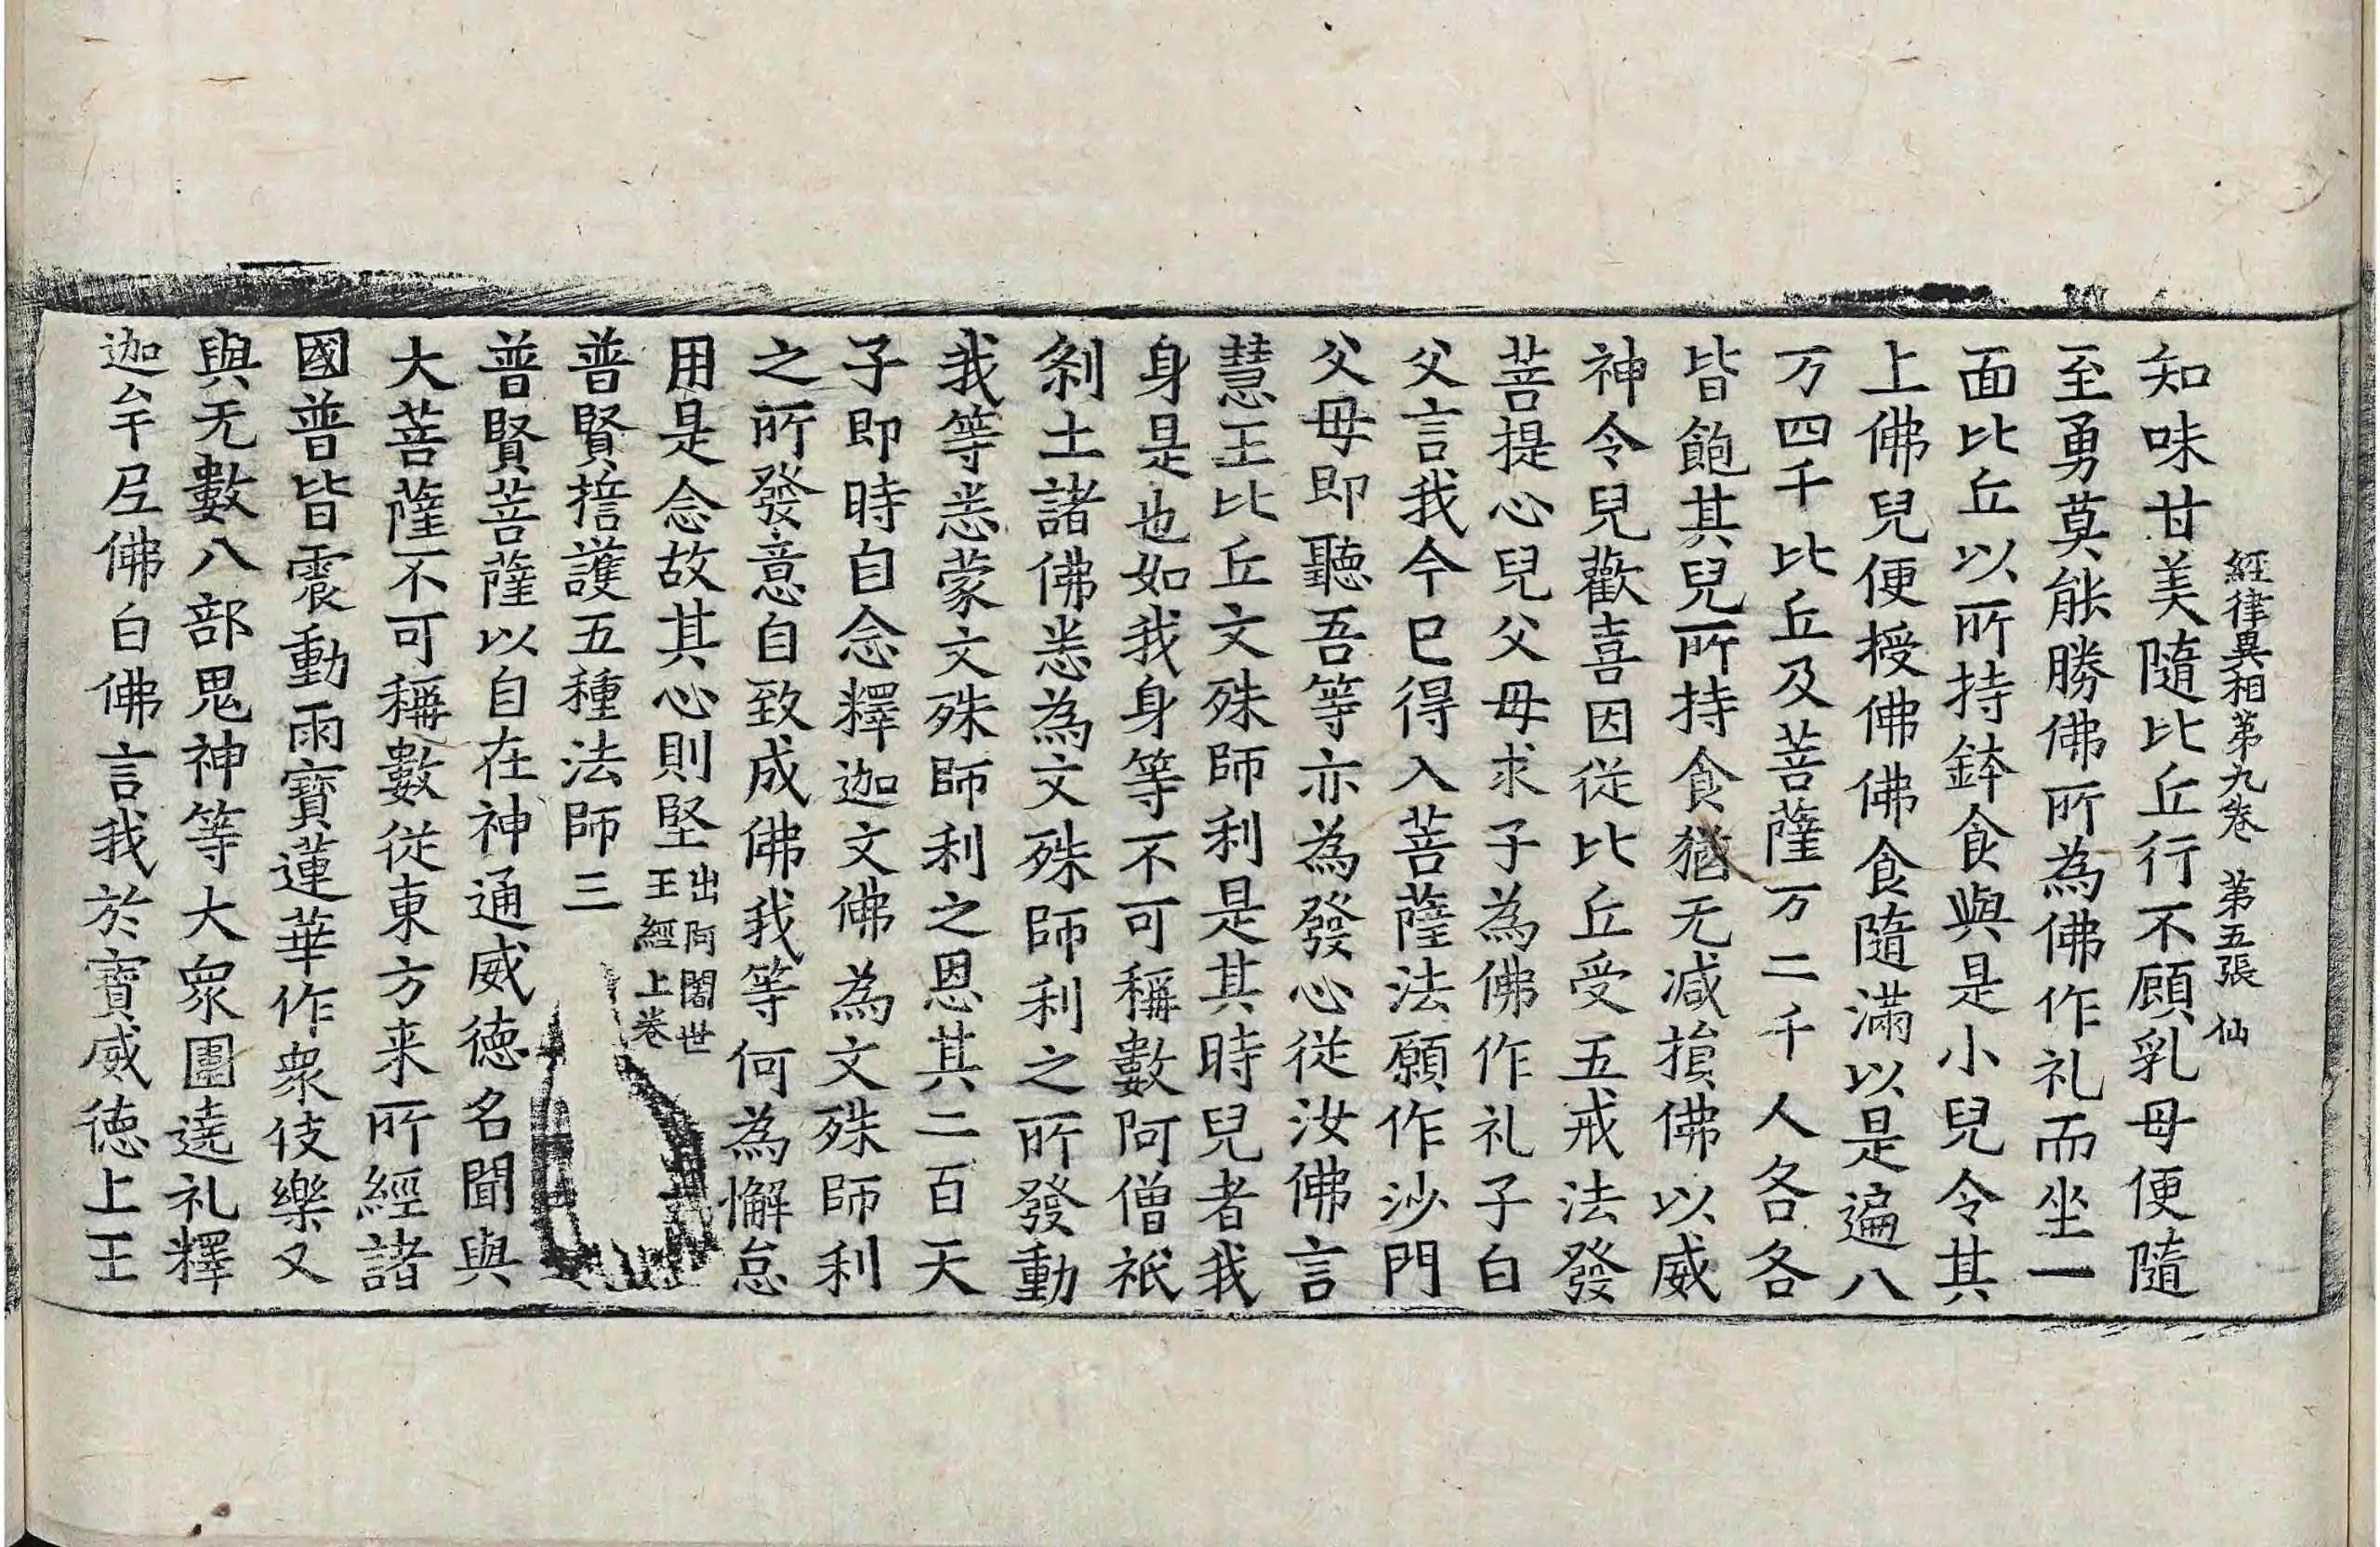 經律異相第九卷 第五張 仙
知味甘美隨比丘行不顧乳母便隨
至勇莫能勝佛所為佛作礼而坐一
面比丘以所持鉢食與是小兒令其
上佛兒便授佛佛食隨滿以是遍八
万四千比丘及菩薩万二千人各各
皆飽其兒所持食猶无減損佛以威
神令兒歡喜因從比丘受五戒法發
菩提心兒父母求子為佛作礼子白
父言我今已得入菩薩法願作沙門
父母即聽吾等亦為發心從汝佛言
慧王比丘文殊師利是其時兒者我
身是也如我身等不可稱數阿僧祇
刹土諸佛悉為文殊師利之所發動
我等悉蒙文殊師利之恩其二百天
子即時自念釋迦文佛為文殊師利
之所發意自致成佛我等何為懈怠
用是念故其心則堅出阿闍世王經上卷
普賢誓護五種法師三
普賢菩薩以自在神通威德名聞與
大菩薩不可稱數從東方来所經諸
國普皆震動雨寶蓮華作衆伎樂又
與无數八部鬼神等大衆圍遶礼釋
迦牟尼佛白佛言我於寶威德上王